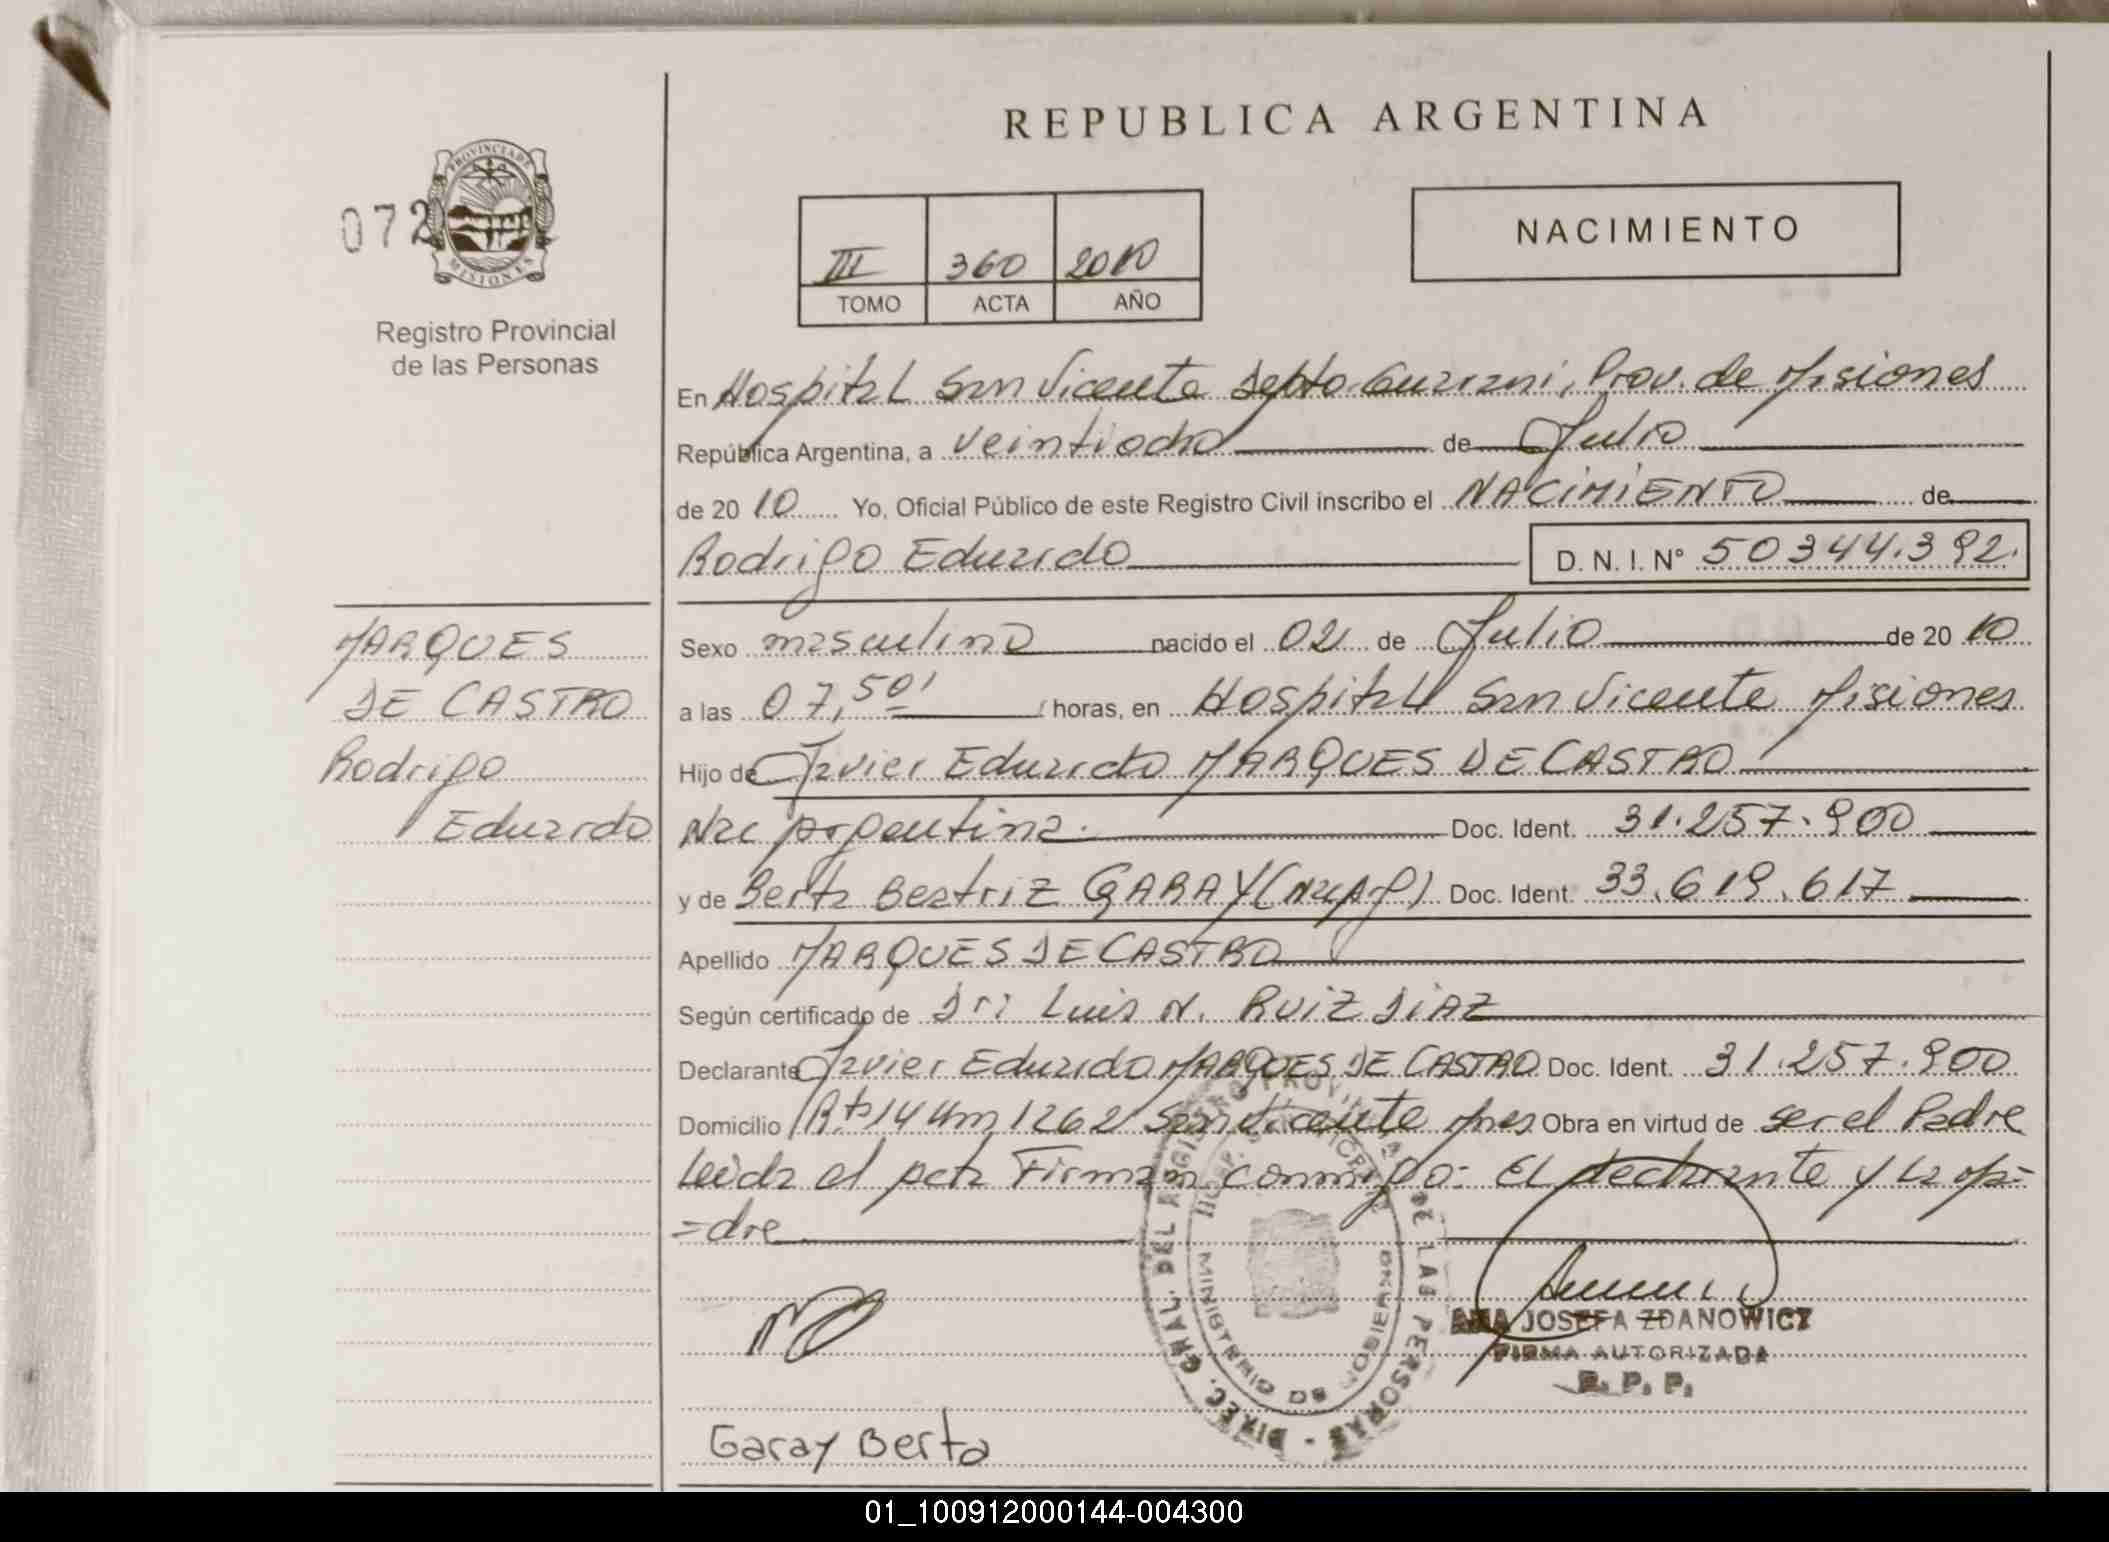 REPUBLICA ARGENTINA
PROVINCIA DE
MISIONES
072
Registro Provincial
de las Personas
III 360 2010
TOMO ACTA AÑO
NACIMIENTO
En Hospital San Vicente Depto. Guarani, Prov. de Misiones
República Argentina, a veintiocho de Julio
de 20 10 Yo, Oficial Público de este Registro Civil inscribo el NACIMIENTO de
Rodrigo Eduardo D. N. I. N° 50344.392.
MARQUES
DE CASTRO
Rodrigo
Eduardo
Sexo masculino nacido el 02 de Julio de 20 10
a las 07,50' horas, en Hospital San Vicente Misiones
Hijo de Javier Eduardo MARQUES DE CASTRO
Nac Argentina. Doc. Ident. 31.257.900
y de Berta Beatriz GARAY (Nac Arg) Doc. Ident. 33.619.617
Apellido MARQUES DE CASTRO
Según certificado de Dr: Luis N. RUIZ DIAZ
Declarante Javier Eduardo MARQUES DE CASTRO Doc. Ident. 31.257.900
Domicilio Rta 14 Km 1262 San Vicente Mnes Obra en virtud de ser el Padre
Leida el Acta Firman conmigo: El declarante y la Ma=
=dre
DIREC. GRAL. DEL REGISTRO PROVINCIAL DE LAS PERSONAS
MINISTERIO DE GOBIERNO
ANA JOSEFA ZDANOWICZ
FIRMA AUTORIZADA
R. P. P.
Garay Berta
01_100912000144-004300